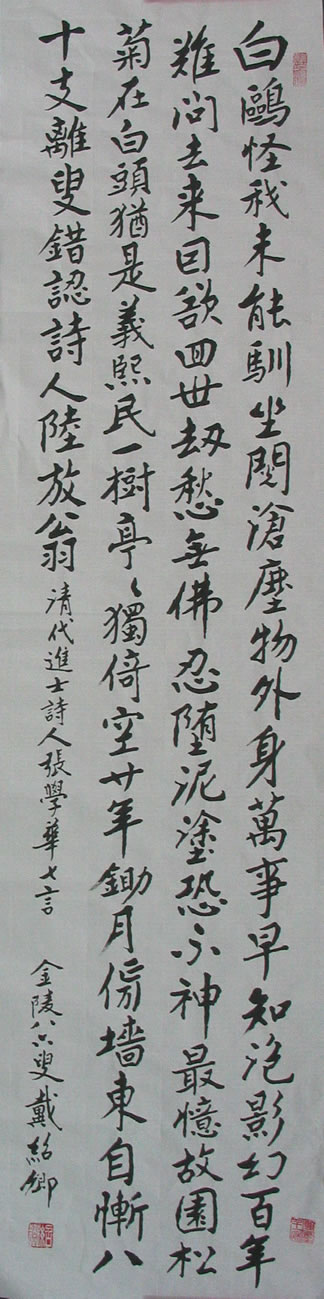 白鷗怪我未能馴坐閱滄塵物外身萬事早知泡影幻百年
難問去来回欲四世劫愁無佛忍墮泥塗恐不神最憶故園松
菊在白頭猶是義熙民一樹亭々獨倚空廿年鋤月傍墻東自慚八
十支離叟錯認詩人陸放翁
清代進士詩人張學華七言
金陵八六叟戴紹卿